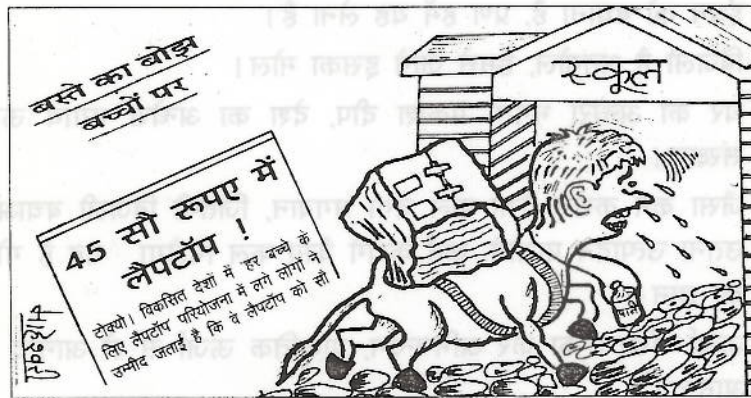 बस्ते का बोझ
बच्चों पर
45 सौ रूपए में
लैपटॉप !
टोक्यो। विकसित देशों में हर बच्चे के
लिए लैपटॉप परियोजना में लगे लोगों ने
उम्मीद जताई है कि वे लैपटॉप को सौ
स्कूल